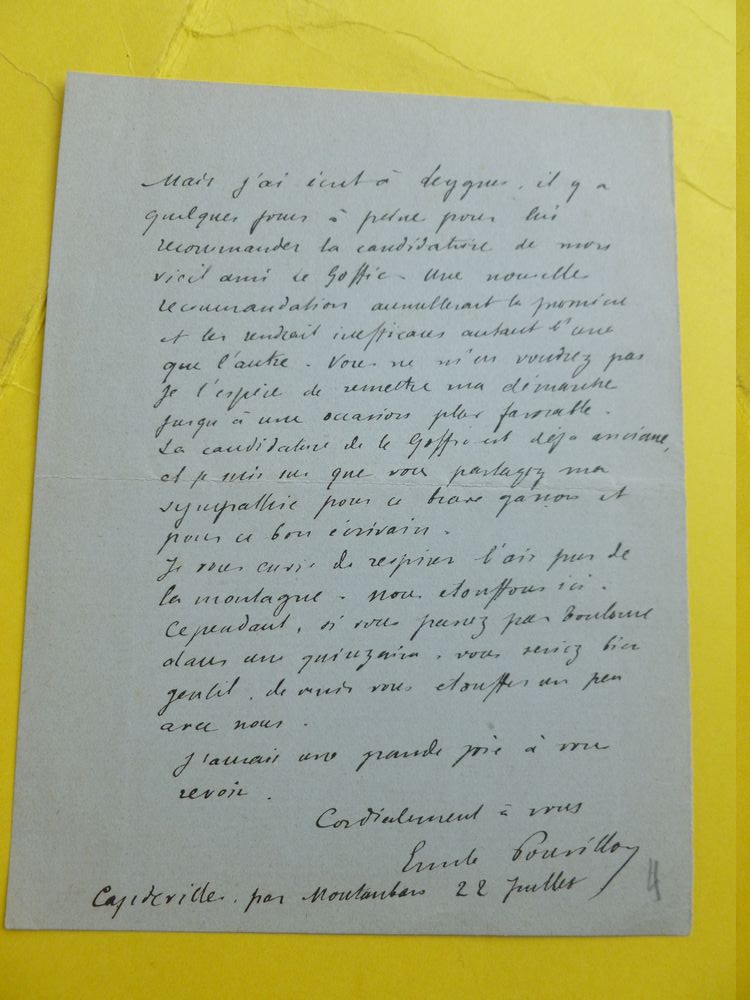 Mais j'ai écrit à Leygues, il y a
quelques jours à peine pour lui
recommander la candidature de mon
vieil ami Le Goffic - Une nouvelle
recommandation annullerait la première
et les rendrait inefficaces autant l'une
que l'autre - Vous ne m'en voudrez pas
je l'espère de remettre ma démarche
jusqu'à une occasion plus favorable.
La candidature de Le Goffic est déjà ancienne,
et je suis sur que vous partagez ma
sympathie pour ce brave garçon et
pour ce bon écrivain.
Je vous envie de respirer l'air pur de
la montagne - nous etouffons ici.
Cependant, si vous passez par Toulouse
dans une quinzaine, vous seriez bien
gentil, de venir vous etouffer un peu
avec nous.
J'aurais une grande joie à vous
revoir.
Cordialement à vous
Emile Pouvillon
Capdeville, par Montauban 22 Juillet
4